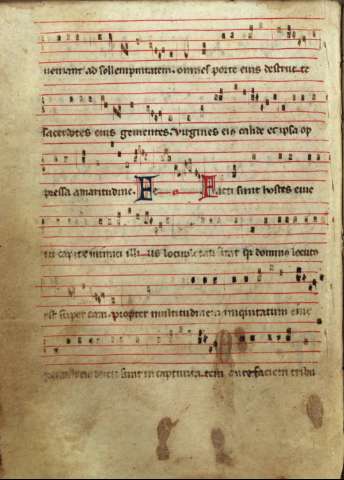 ueniant ad sollempnitatem. omnes porte eius destructe
sacerdotes eius gementes. uirgines eius calide et ipsa op
pressa amaritudine. He Facti sunt hostes eius
in capite inimici illius locupletati sunt quia dominus locutus
est super eam. propter multitudinem iniquitatum eius
ducti sunt in captiuitatem ante faciem tribu